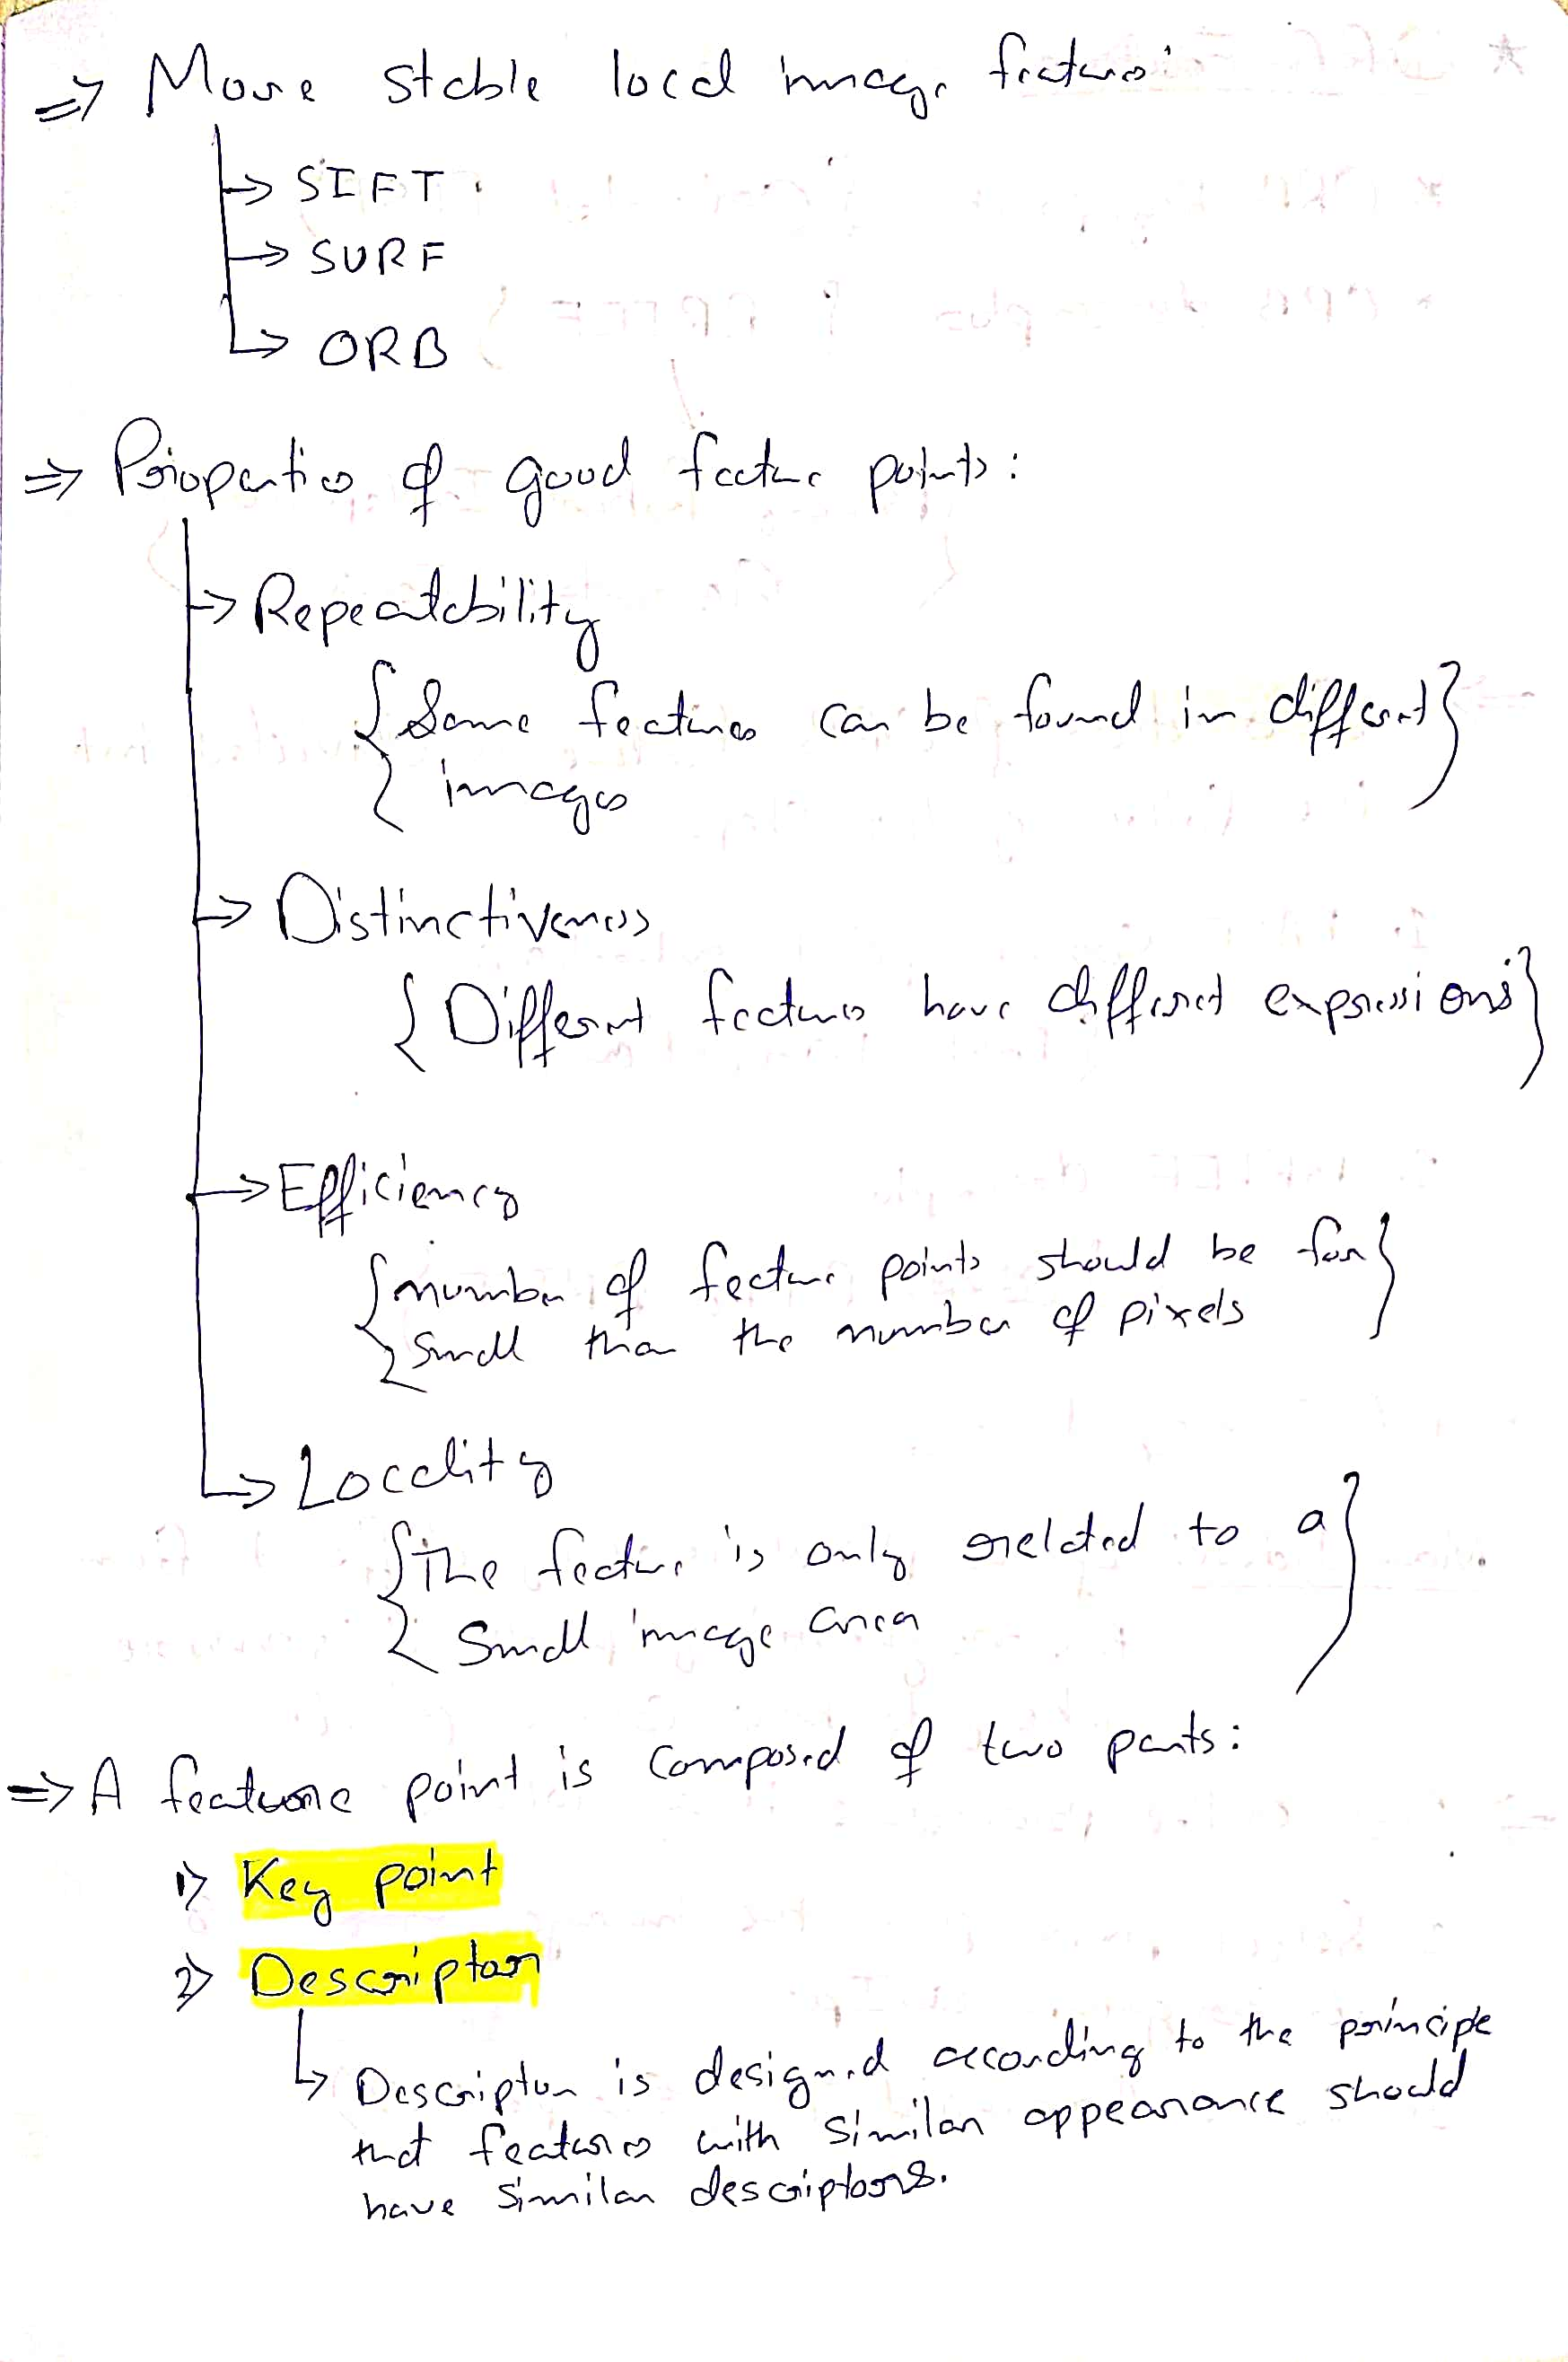 ⇒ More stable local image features:
→ SIFT
→ SURF
→ ORB
⇒ Properties of good feature points:
→ Repeatability
{Same features can be found in different}
images
→ Distinctiveness
{Different features have different expressions}
→ Efficiency
{number of feature points should be far}
small than the number of pixels
→ Locality
{The feature is only related to a}
small image area
⇒ A feature point is composed of two parts:
1> Key point
2> Descriptor
↳ Descriptor is designed according to the principle
that features with similar appearance should
have similar descriptors.